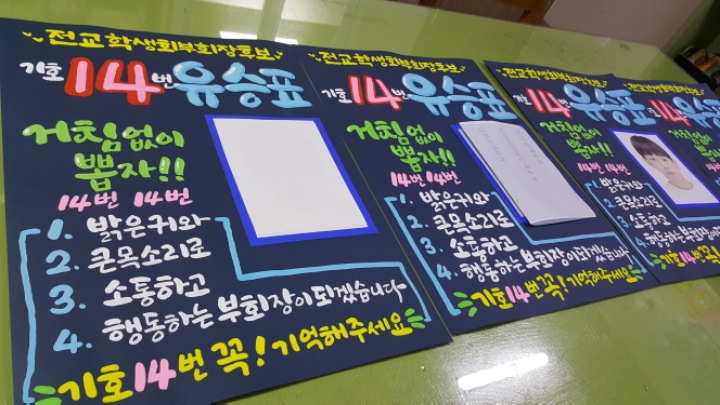 전교학생회부회장후보
기호 14번 유승표
거침없이
뽑자!!
14번 14번
1. 밝은귀와
2. 큰목소리로
3. 소통하고
4. 행동하는 부회장이되겠습니다
기호14번 꼭! 기억해주세요
전교학생회부회장후보
기호 14번 유승표
거침없이
뽑자!!
14번 14번
1. 밝은귀와
2. 큰목소리로
3. 소통하고
4. 행동하는 부회장이되겠습니다
기호14번 꼭! 기억해주세요
전교학생회부회장후보
기호 14번 유승표
거침없이
뽑자!!
14번 14번
1. 밝은귀와
2. 큰목소리로
3. 소통하고
4. 행동하는 부회장이
기호14번 꼭!
전교학생회부회장후보
14번 유승
거침없이
뽑자!!
14번